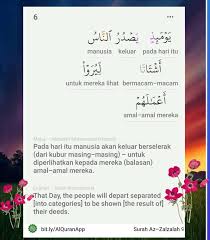 6
يَوْمَئِذٍ يَصْدُرُ النَّاسُ
manusia keluar pada hari itu
أَشْتَاتًا لِيُرَوْا
untuk mereka lihat bermacam-macam
أَعْمَالَهُمْ
amal-amal mereka
Pada hari itu manusia akan keluar berselerak
(dari kubur masing-masing) – untuk
diperlihatkan kepada mereka (balasan)
amal-amal mereka.
That Day, the people will depart separated
[into categories] to be shown [the result of]
their deeds.
bit.ly/AlQuranApp
Surah Az-Zalzalah 9